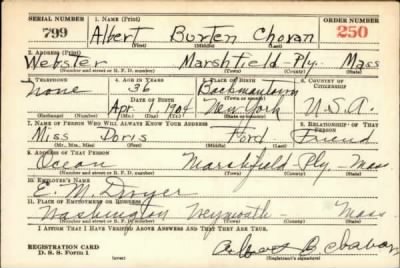 SERIAL NUMBER 1. NAME (Print) ORDER NUMBER
799 Albert Burten Chovan 250
(First) (Middle) (Last)
2. ADDRESS (Print)
Webster Marshfield-Ply. Mass
(Number and street or R. F. D. number) (Town) (County) (State)
3. TELEPHONE 4. AGE IN YEARS 5. PLACE OF BIRTH 6. COUNTRY OF CITIZENSHIP
None 36 Beekmantown
DATE OF BIRTH (Town or county)
Apr 1 1904 New York U.S.A.
(Mo.) (Day) (Yr.) (State or country)
7. NAME OF PERSON WHO WILL ALWAYS KNOW YOUR ADDRESS 8. RELATIONSHIP OF THAT PERSON
Miss Doris Ford Friend
(Mr., Mrs., Miss) (First) (Middle) (Last)
9. ADDRESS OF THAT PERSON
Ocean Marshfield-Ply- Mass
(Number and street or R. F. D. number) (Town) (County) (State)
10. EMPLOYER'S NAME
E. M. Dwyer
11. PLACE OF EMPLOYMENT OR BUSINESS
Washington Weymouth - Mass
(Number and street or R. F. D. number) (Town) (County) (State)
I AFFIRM THAT I HAVE VERIFIED ABOVE ANSWERS AND THAT THEY ARE TRUE.
REGISTRATION CARD Albert B Chovan
D. S. S. Form 1 (over) (Registrant's signature)